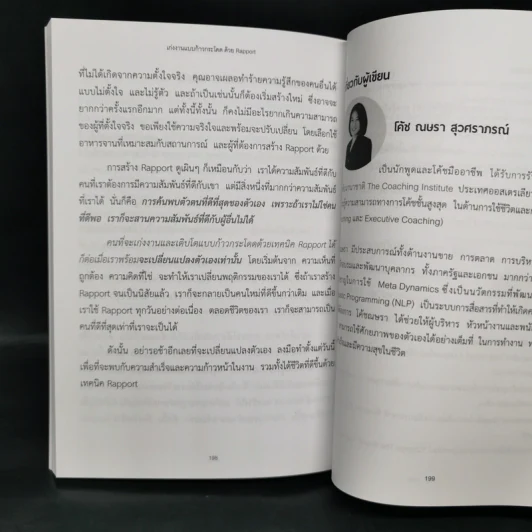 เก่งงานแบบก้าวกระโดด ด้วย Rapport
ที่ไม่ได้เกิดจากความตั้งใจจริง คุณอาจเผลอทำร้ายความรู้สึกของคนอื่นได้
แบบไม่ตั้งใจ และไม่รู้ตัว และถ้าเป็นเช่นนั้นก็ต้องเริ่มสร้างใหม่ ซึ่งอาจจะ
ยากกว่าครั้งแรกอีกมาก แต่ทั้งนี้ทั้งนั้น ก็คงไม่มีอะไรยากเกินความสามารถ
ของผู้ที่ตั้งใจจริง ขอเพียงใช้ความจริงใจและพร้อมจะปรับเปลี่ยน โดยเลือกใช้
อาหารจานที่เหมาะสมกับสถานการณ์ และผู้ที่ต้องการสร้าง Rapport ด้วย
การสร้าง Rapport ดูเผินๆ ก็เหมือนกับว่า เราได้ความสัมพันธ์ที่ดีกับ
คนที่เราต้องการมีความสัมพันธ์ที่ดีกับเขา แต่มีสิ่งหนึ่งที่มากกว่าความสัมพันธ์
ที่เราได้ นั่นก็คือ การค้นพบตัวตนที่ดีที่สุดของตัวเอง เพราะถ้าเราไม่ใช่คน
ที่ดีพอ เราก็จะสานความสัมพันธ์ที่ดีกับผู้อื่นไม่ได้
คนที่จะเก่งงานและเติบโตแบบก้าวกระโดดด้วยเทคนิค Rapport ได้
ก็ต่อเมื่อเราพร้อมจะเปลี่ยนแปลงตัวเองเท่านั้น โดยเริ่มต้นจาก ความเห็นที่
ถูกต้อง ความคิดที่ใช่ จะทำให้เราเปลี่ยนพฤติกรรมของเราได้ ซึ่งถ้าเราสร้าง
Rapport จนเป็นนิสัยแล้ว เราก็จะกลายเป็นคนใหม่ที่ดีขึ้นกว่าเดิม และเมื่อ
เราใช้ Rapport ทุกวันอย่างต่อเนื่อง ตลอดชีวิตของเรา เราก็จะสามารถเป็น
คนที่ดีที่สุดเท่าที่เราจะเป็นได้
ดังนั้น อย่ารอช้าอีกเลยที่จะเปลี่ยนแปลงตัวเอง ลงมือทำตั้งแต่วันนี้
เพื่อที่จะพบกับความสำเร็จและความก้าวหน้าในงาน รวมทั้งได้ชีวิตที่ดีขึ้นด้วย
เทคนิค Rapport
กี่ยวกับผู้เขียน
โค้ช ณษรา สุวศราภรณ์
เป็นนักพูดและโค้ชมืออาชีพ ได้รับการรั
The Coaching Institute ประเทศออสเตรเลีย
ความสามารถทางการโค้ชขั้นสูงสุด ในด้านการใช้ชีวิตและ
และ Executive Coaching)
มีประสบการณ์ทั้งด้านงานขาย การตลาด การบริห
และพัฒนาบุคลากร ทั้งภาครัฐและเอกชน มากกว่า
ในการใช้ Meta Dynamics ซึ่งเป็นนวัตกรรมที่พัฒน
Programming (NLP) เป็นระบบการสื่อสารที่ทำให้เกิด
โค้ชณษรา ได้ช่วยให้ผู้บริหาร หัวหน้างานและพนั
สามารถใช้ศักยภาพของตัวเองได้อย่างเต็มที่ ในการทำงาน
และมีความสุขในชีวิต
199